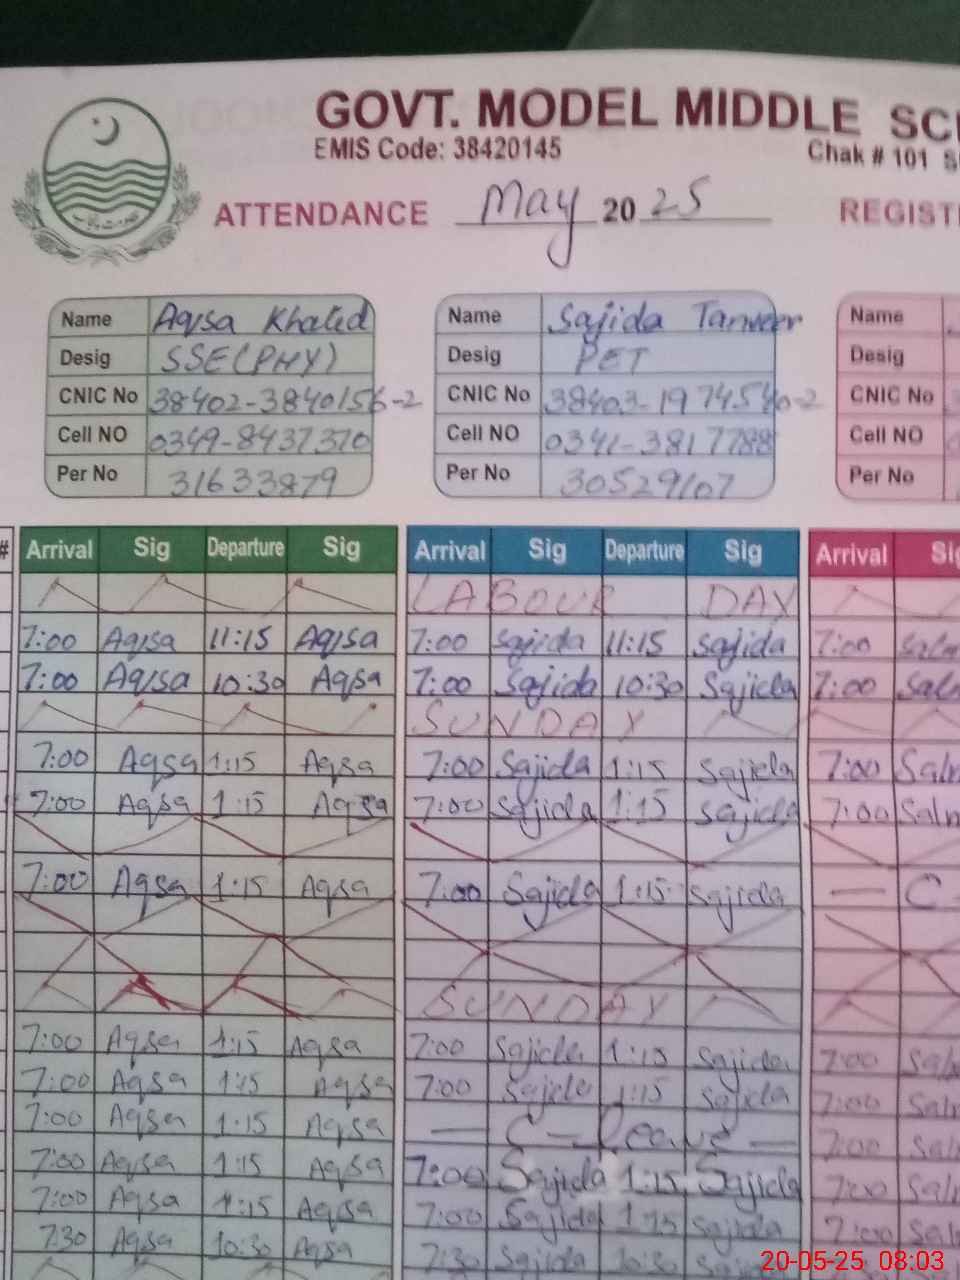 GOVT. MODEL MIDDLE
EMIS Code: 38420145
Chak # 101
ATTENDANCE May 2025
Name Aqsa Khaled Name Sajida Tanveer Name
Desig SSE(PHY) Desig PET Desig
CNIC No 38402-3840156-2 CNIC No 38403-1974540-2 CNIC No
Cell NO 0349-8437370 Cell NO 0341-3817788 Cell NO
Per No 31633879 Per No 30529107 Per No
# Arrival Sig Departure Sig Arrival Sig Departure Sig Arrival
LABOUR DAY
7:00 Aqsa 11:15 Aqsa 7:00 Sajida 11:15 Sajida 7:00
7:00 Aqsa 10:30 Aqsa 7:00 Sajida 10:30 Sajida 7:00
SUNDAY
7:00 Aqsa 1:15 Aqsa 7:00 Sajida 1:15 Sajida 7:00
7:00 Aqsa 1:15 Aqsa 7:00 Sajida 1:15 Sajida 7:00
7:00 Aqsa 1:15 Aqsa 7:00 Sajida 1:15 Sajida — C
SUNDAY
7:00 Aqsa 1:15 Aqsa 7:00 Sajida 1:15 Sajida 7:00
7:00 Aqsa 1:15 Aqsa 7:00 Sajida 1:15 Sajida 7:00
7:00 Aqsa 1:15 Aqsa — C — Leave — 7:00
7:00 Aqsa 1:15 Aqsa 7:00 Sajida 1:15 Sajida 7:00
7:00 Aqsa 1:15 Aqsa 7:00 Sajida 1:15 Sajida 7:00
730 Aqsa 10:30 Aqsa 7:30 Sajida 10:30
20-05-25 08:03